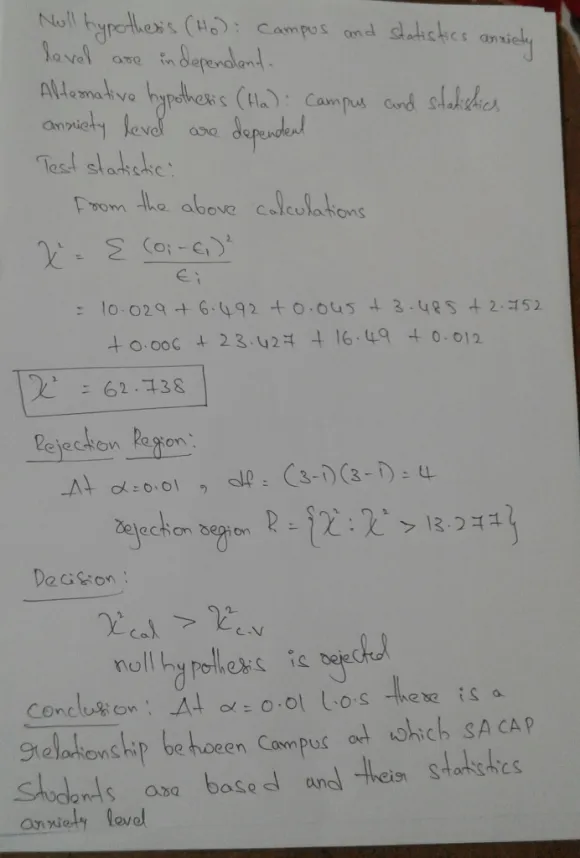 Null hypothesis (H₀): Campus and statistics anxiety
level are independent.
Alternative hypothesis (Ha): Campus and statistics
anxiety level are dependent
Test statistic:
From the above calculations
χ² = Σ (Oi - Ei)²
Ei
= 10.029 + 6.492 + 0.045 + 3.485 + 2.752
+ 0.006 + 23.427 + 16.49 + 0.012
χ² = 62.738
Rejection Region:
At α=0.01, df = (3-1)(3-1) = 4
rejection region R = {χ² : χ² > 13.277}
Decision:
χ²cal > χ²c.v
null hypothesis is rejected
Conclusion: At α = 0.01 l.o.s there is a
relationship between campus at which SACAP
Students are based and their statistics
anxiety level